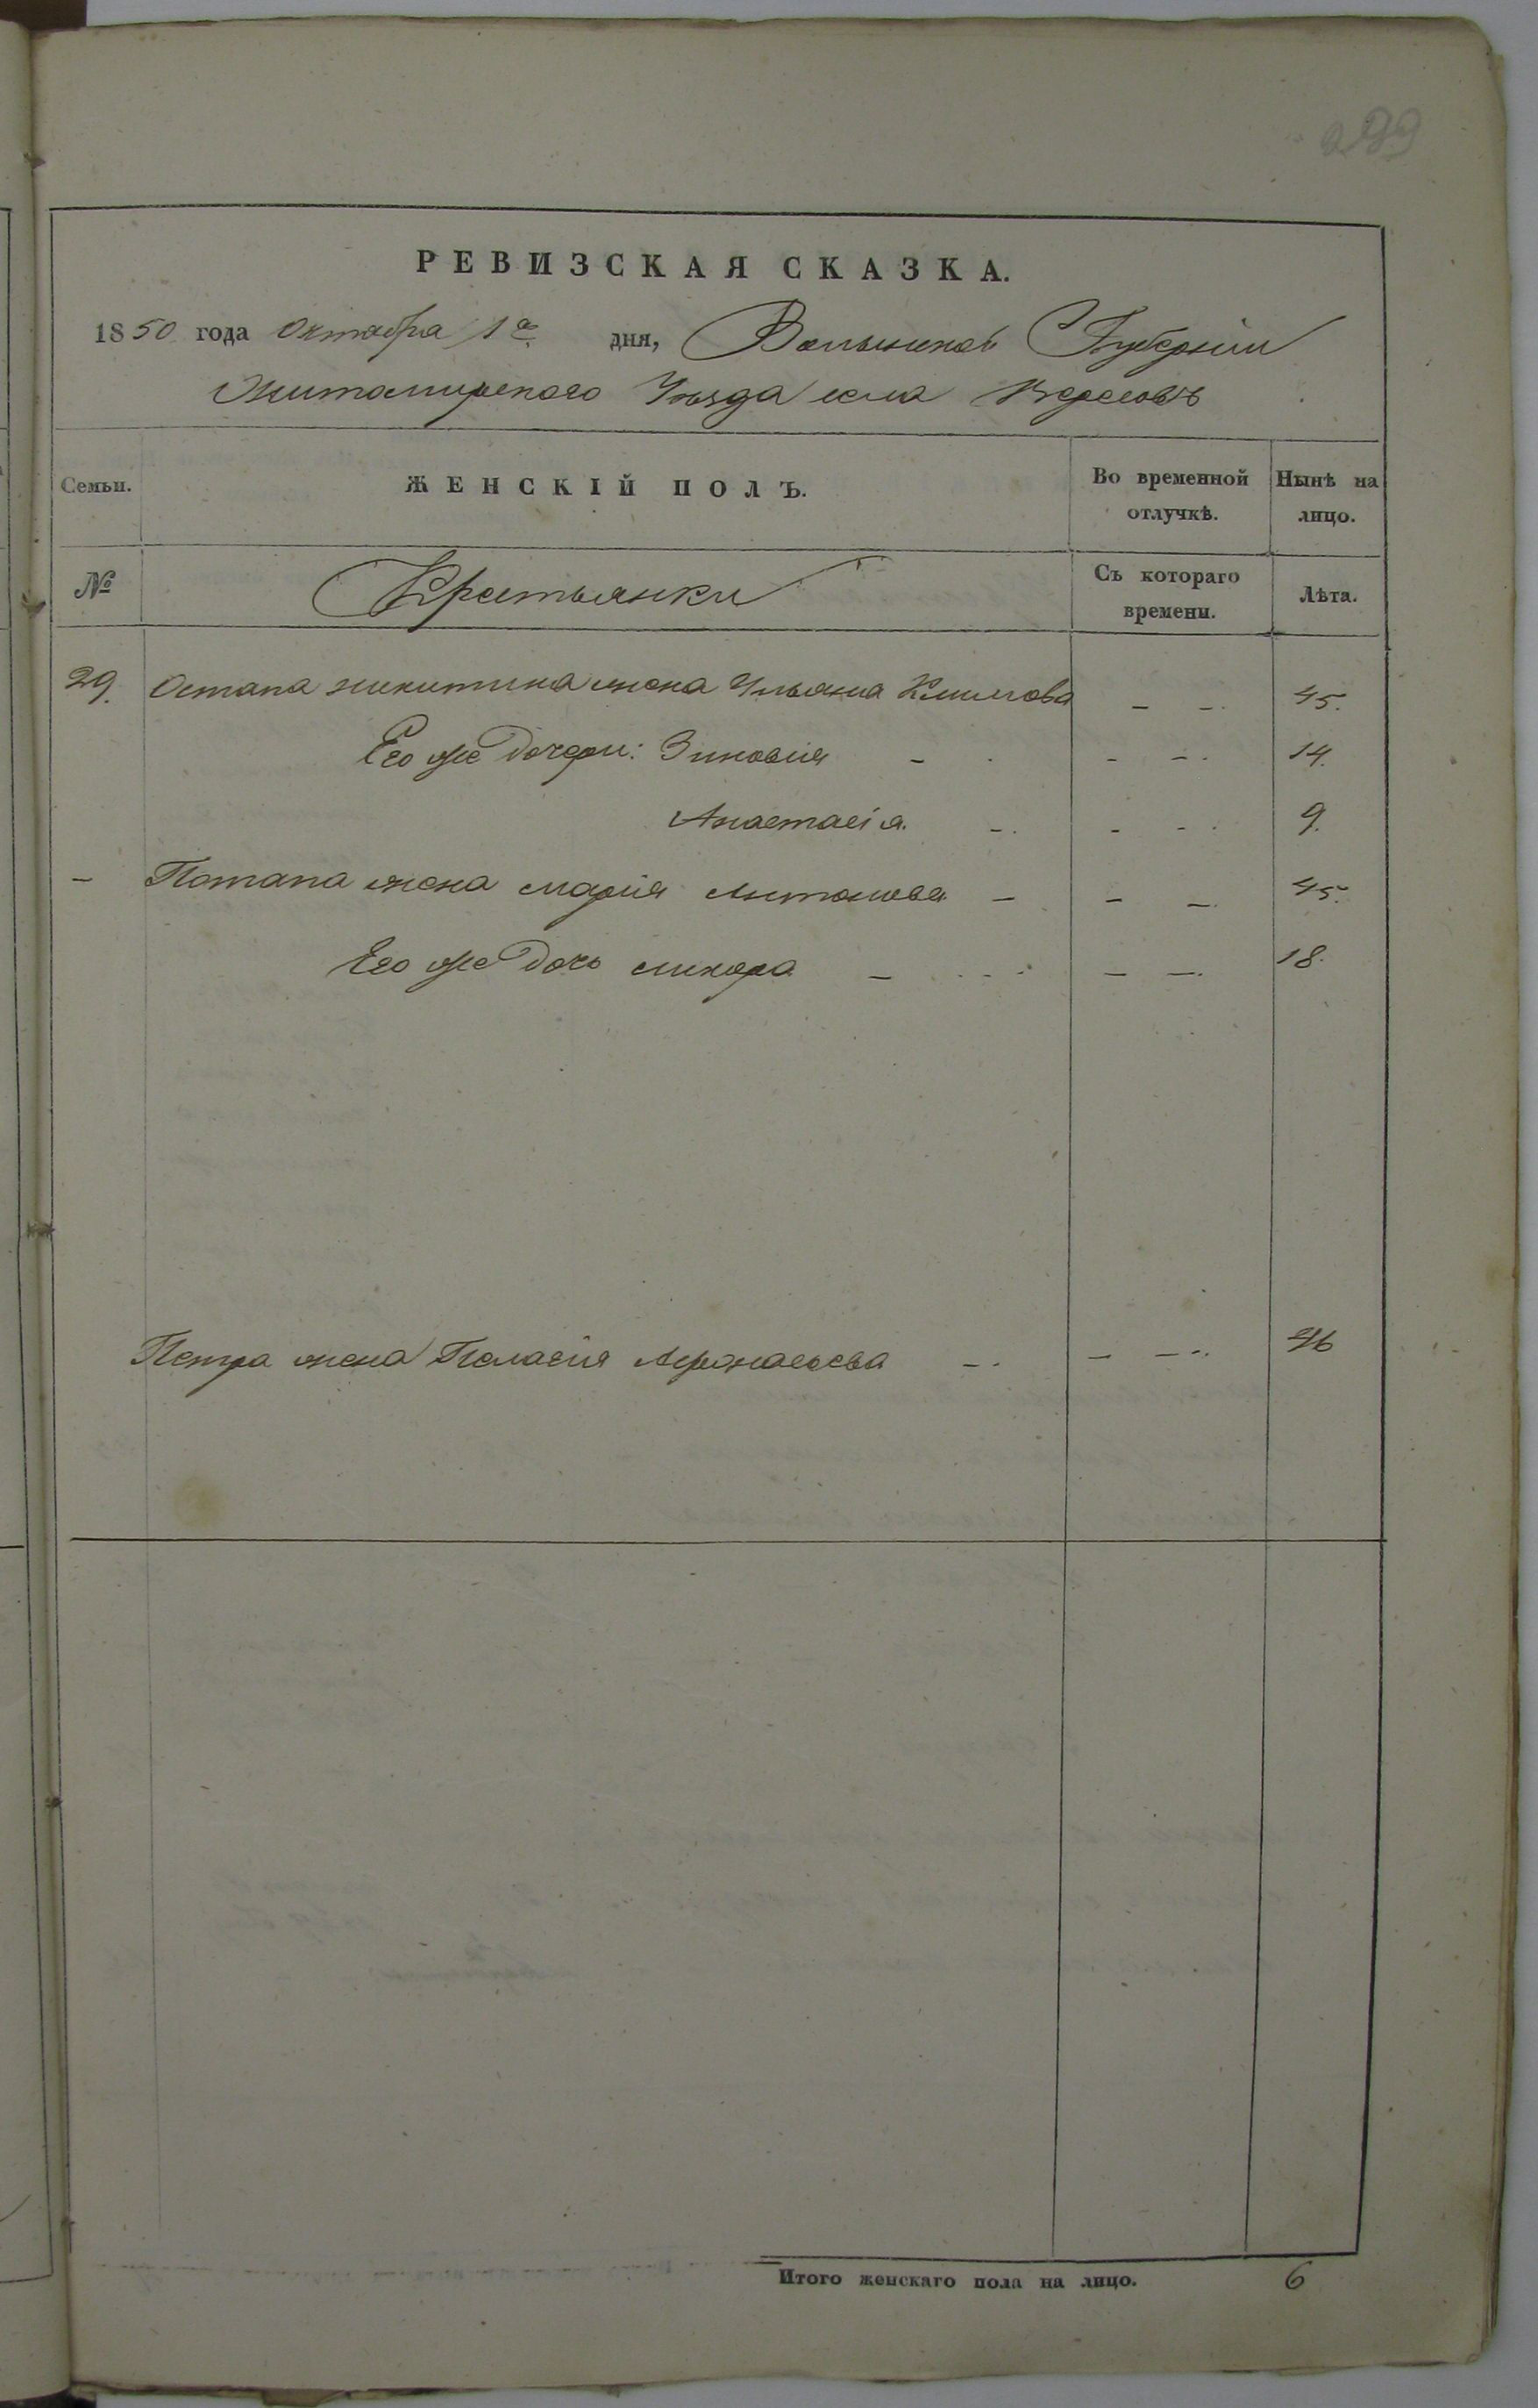 299
РЕВИЗСКАЯ СКАЗКА.
1850 года Октября 1го дня, Волынской Губерніи
Житомирского Уѣзда села Вересовъ
Семьи. ЖЕНСКІЙ ПОЛЪ. Во временной отлучкѣ. Нынѣ на лицо.
№ Крестьянки Съ котораго времени. Лѣта.
29. Остапа Никитина жена Ульяна Климова — — 45.
Его же Дочери: Зиновия — — — 14.
Анастасія. — — — 9.
— Потапа жена Марія Антонова — — — 45.
Его же Дочь — — — 18.
Петра жена Пелагія Афонасьева — — —
Итого женскаго пола на лицо. 6